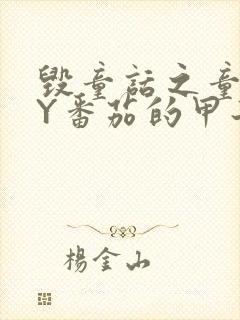 毁童话之童
Y番茄的甲
楊金山